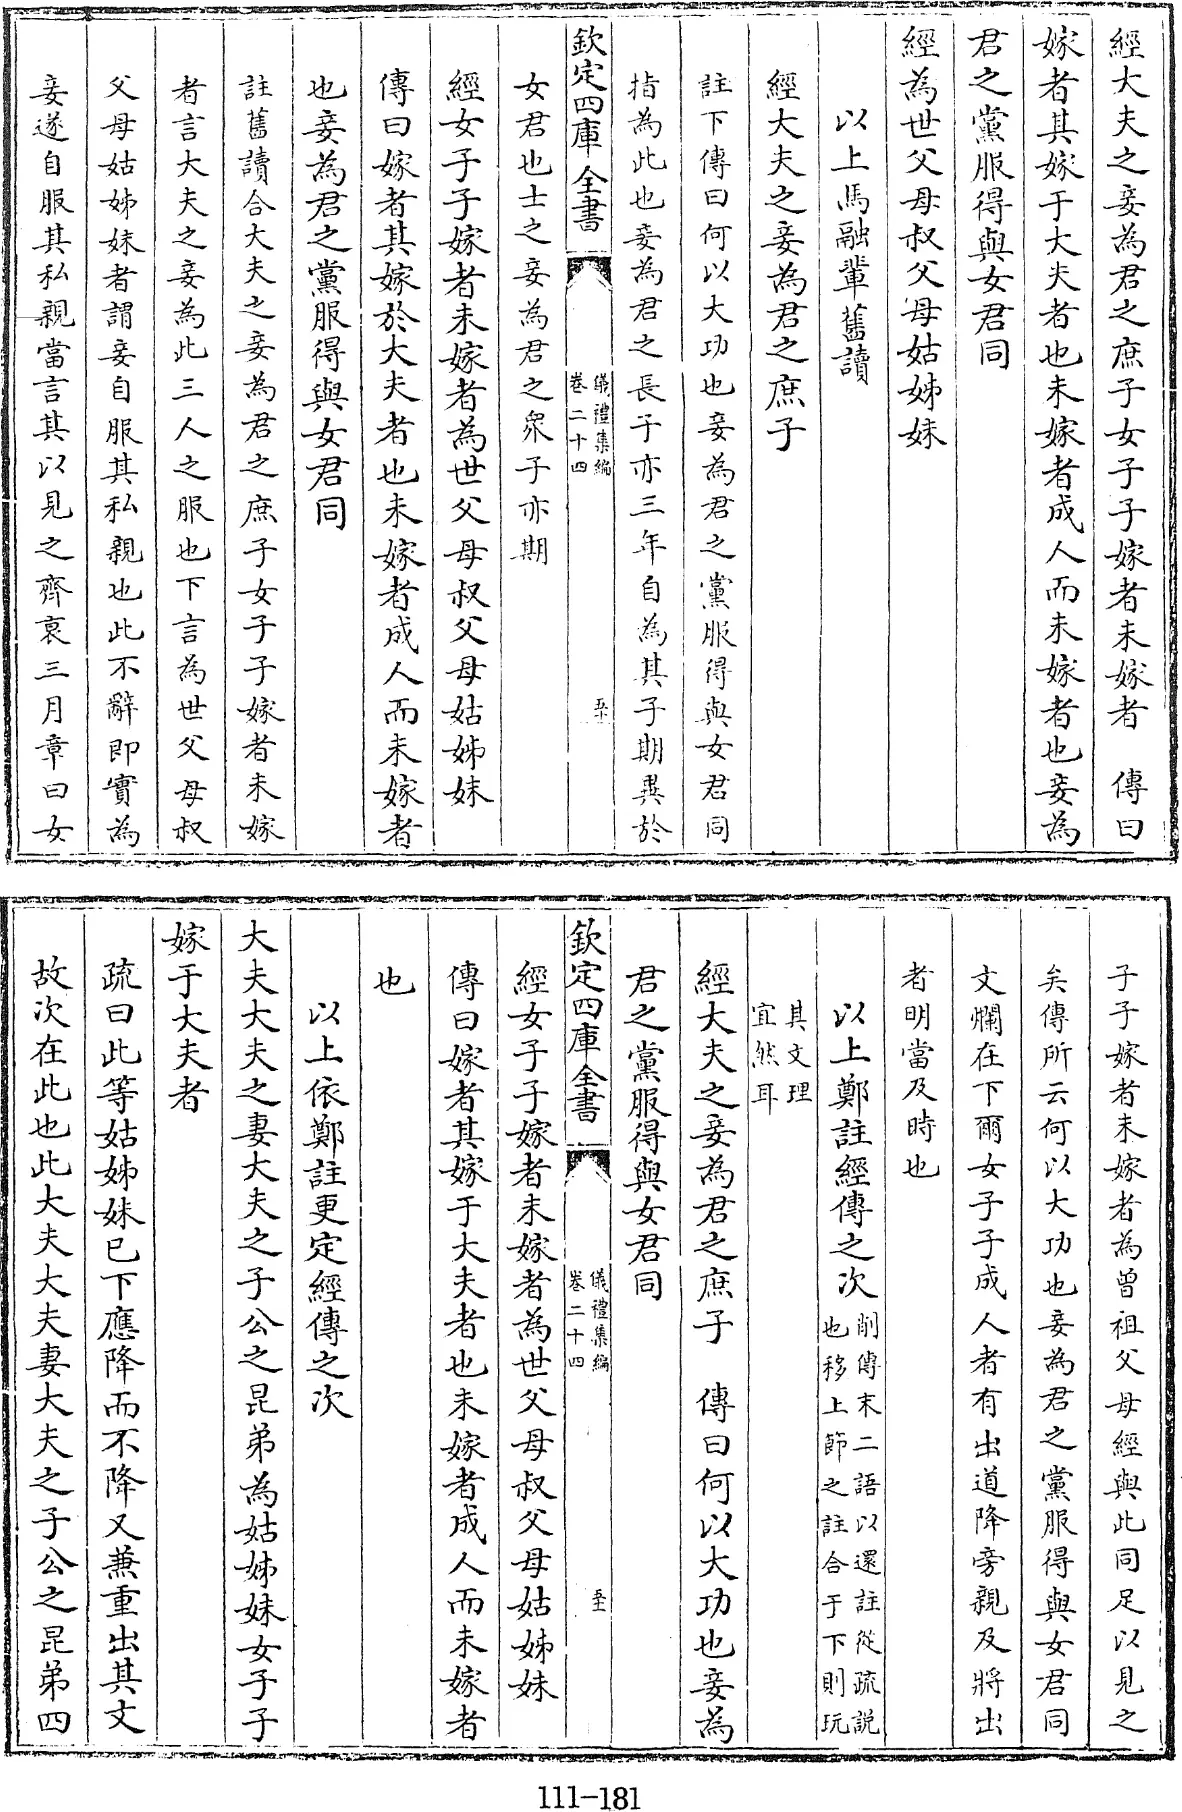 經大夫之妾為君之庶子女子子嫁者未嫁者　傳曰
嫁者其嫁于大夫者也未嫁者成人而未嫁者也妾為
君之黨服得與女君同
經為世父母叔父母姑姊妹
以上馬融輩舊讀
經大夫之妾為君之庶子
註下傳曰何以大功也妾為君之黨服得與女君同
指為此也妾為君之長子亦三年自為其子期異於
欽定四庫全書
儀禮集編
卷二十四
五十
女君也士之妾為君之衆子亦期
經女子子嫁者未嫁者為世父母叔父母姑姊妹
傳曰嫁者其嫁於大夫者也未嫁者成人而未嫁者
也妾為君之黨服得與女君同
註舊讀合大夫之妾為君之庶子女子子嫁者未嫁
者言大夫之妾為此三人之服也下言為世父母叔
父母姑姊妹者謂妾自服其私親也此不辭即實為
妾遂自服其私親當言其以見之齊衰三月章曰女
子子嫁者未嫁者為曾祖父母經與此同足以見之
矣傳所云何以大功也妾為君之黨服得與女君同
文爛在下爾女子子成人者有出道降旁親及將出
者明當及時也
以上鄭註經傳之次削傳末二語以還註從疏說
也移上節之註合于下則玩
其文理
宜然耳
經大夫之妾為君之庶子　傳曰何以大功也妾為
君之黨服得與女君同
欽定四庫全書
儀禮集編
卷二十四
五十一
經女子子嫁者未嫁者為世父母叔父母姑姊妹
傳曰嫁者其嫁于大夫者也未嫁者成人而未嫁者
也
以上依鄭註更定經傳之次
大夫大夫之妻大夫之子公之昆弟為姑姊妹女子子
嫁于大夫者
疏曰此等姑姊妹已下應降而不降又兼重出其文
故次在此也此大夫大夫妻大夫之子公之昆弟四
111-181